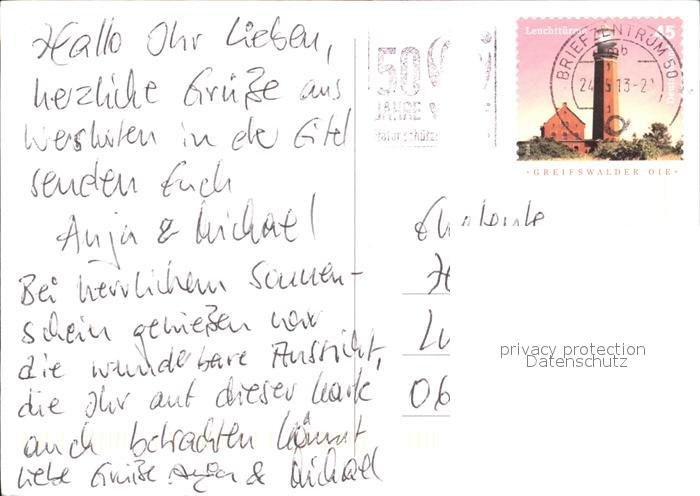 Hallo Ihr Lieben,
herzliche Grüße aus
in der Eifel
senden Euch
Anja & Michael
Bei herrlichem Sonnen-
schein genießen wir
die wunderbare Aussicht,
die Ihr auf dieser Karte
auch betrachten könnt
Liebe Grüße Anja & Michael
50
JAHRE
Naturschutz
Leuchttürme
45
BRIEFZENTRUM 50
24. 5.13-21
·GREIFSWALDER OIE·
06
privacy protection
Datenschutz